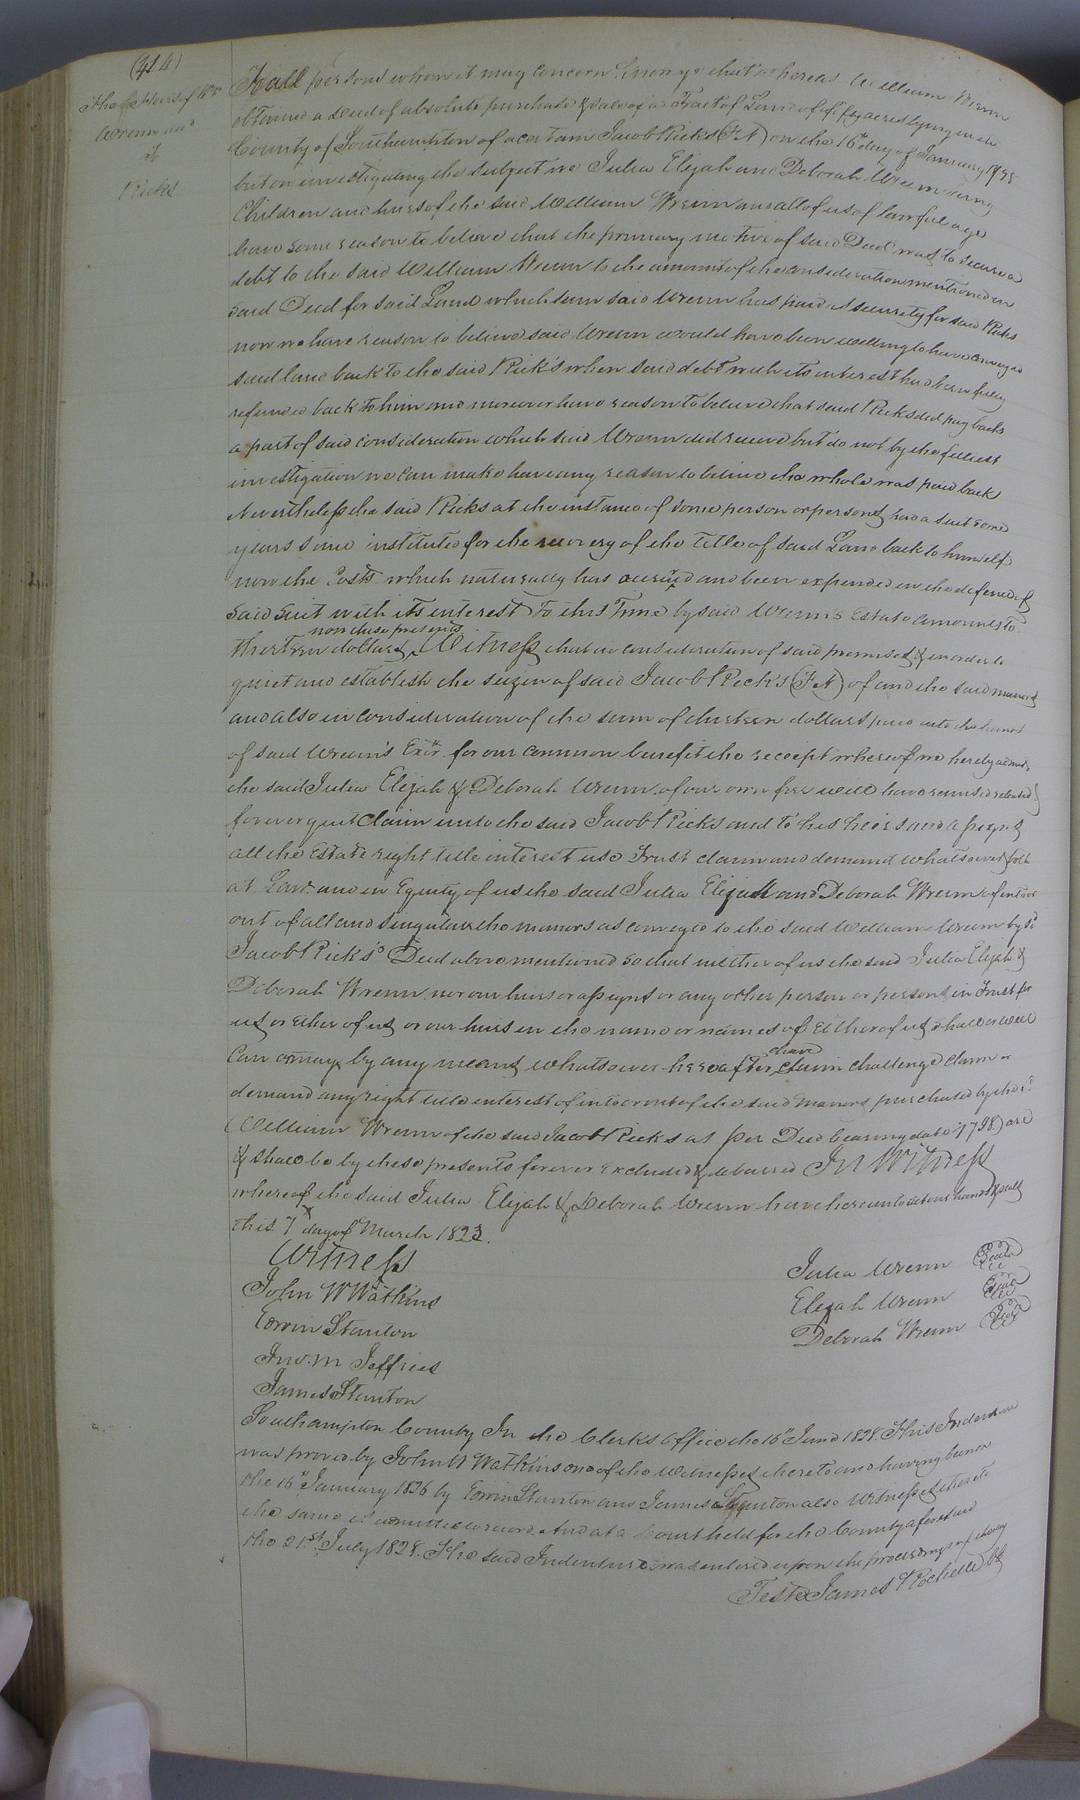 (414)
The Heirs of Wm
Wrenn &c
To
Ricks
To all persons whom it may concern Know ye that whereas William Wrenn
obtained a Deed of absolute purchase & sale of a Tract of Land of fifty acres lying in the
County of Southampton of a certain Jacob Ricks (F N) on the 16th day of January 1798
but on investigating the subject we Julia Elijah and Deborah Wrenn being
Children and heirs of the said William Wrenn and all of us of lawful age
have some reason to believe that the primary motive of said Deed was to secure a
debt to the said William Wrenn to the amount of the consideration mentioned in
said Deed for said Land which sum said Wrenn has paid as security for said Ricks
now we have reason to believe said Wrenn would have been willing to have conveyed
said land back to the said Rick's when said debt with its interest had been fully
refunded back to him and moreover have reason to believe that said Ricks did pay back
a part of said consideration which said Wrenn did receive but do not by the fullest
investigation we can make have any reason to believe the whole was paid back
Nevertheless the said Ricks at the instance of some person or persons had a suit some
years since instituted for the recovery of the Title of said Land back to himself
now the Costs which naturally has accrued and been expended in the defence of
said suit with its interest to this Time by said Wrenn's Estate amounts to
thirteen dollars now these presents Witness that in consideration of said premises & in order to
quiet and establish the seizin of said Jacob Rick's (F N) of and the said manors
and also in consideration of the sum of thirteen dollars paid into the hands
of said Wrenn's Exor. for our common benefit the receipt whereof we hereby admit
the said Julia Elijah & Deborah Wrenn of our own free will have remised released &
forever quit Claim unto the said Jacob Ricks and to his heirs and assigns
all the Estate right title interest use Trust claim and demand whatsoever both
at Law and in Equity of us the said Julia Elijah and Deborah Wrenn of into or
out of all and singular the manors as conveyed to the said William Wrenn by sd
Jacob Rick's Deed above mentioned so that neither of us the said Julia Elijah &
Deborah Wrenn nor our heirs or assigns or any other person or persons in Trust for
us or Either of us or our heirs in the name or names of Either of us shall or will
Can or may by any means whatsoever hereafter have claim challenge claim or
demand any right title interest of into or out of the said Manors purchased by the sd
William Wrenn of the said Jacob Ricks as per Deed bearing date 1798) are
& shall be by these presents forever excluded & debarred In Witness
whereof the said Julia Elijah & Deborah Wrenn have hereunto set our hands & seals
this 7th day of March 1823.
Witness
John W Watkins
Edwin Stanton
Jno. M Jeffries
James Stanton
Julia Wrenn Seal
Elijah Wrenn Seal
Deborah Wrenn Seal
Southampton County In the Clerks Office the 16th June 1828. This Indenture
was proved by John W Watkins one of the witnesses thereto and having been on
the 16th January 1826 by Edwin Stanton and James Stanton also Witnesses thereto
the same is admitted to record. And at a Court held for the County aforesaid
the 21st July 1828. The said Indenture was entered upon the proceedings of the day
Teste James Rochelle CC